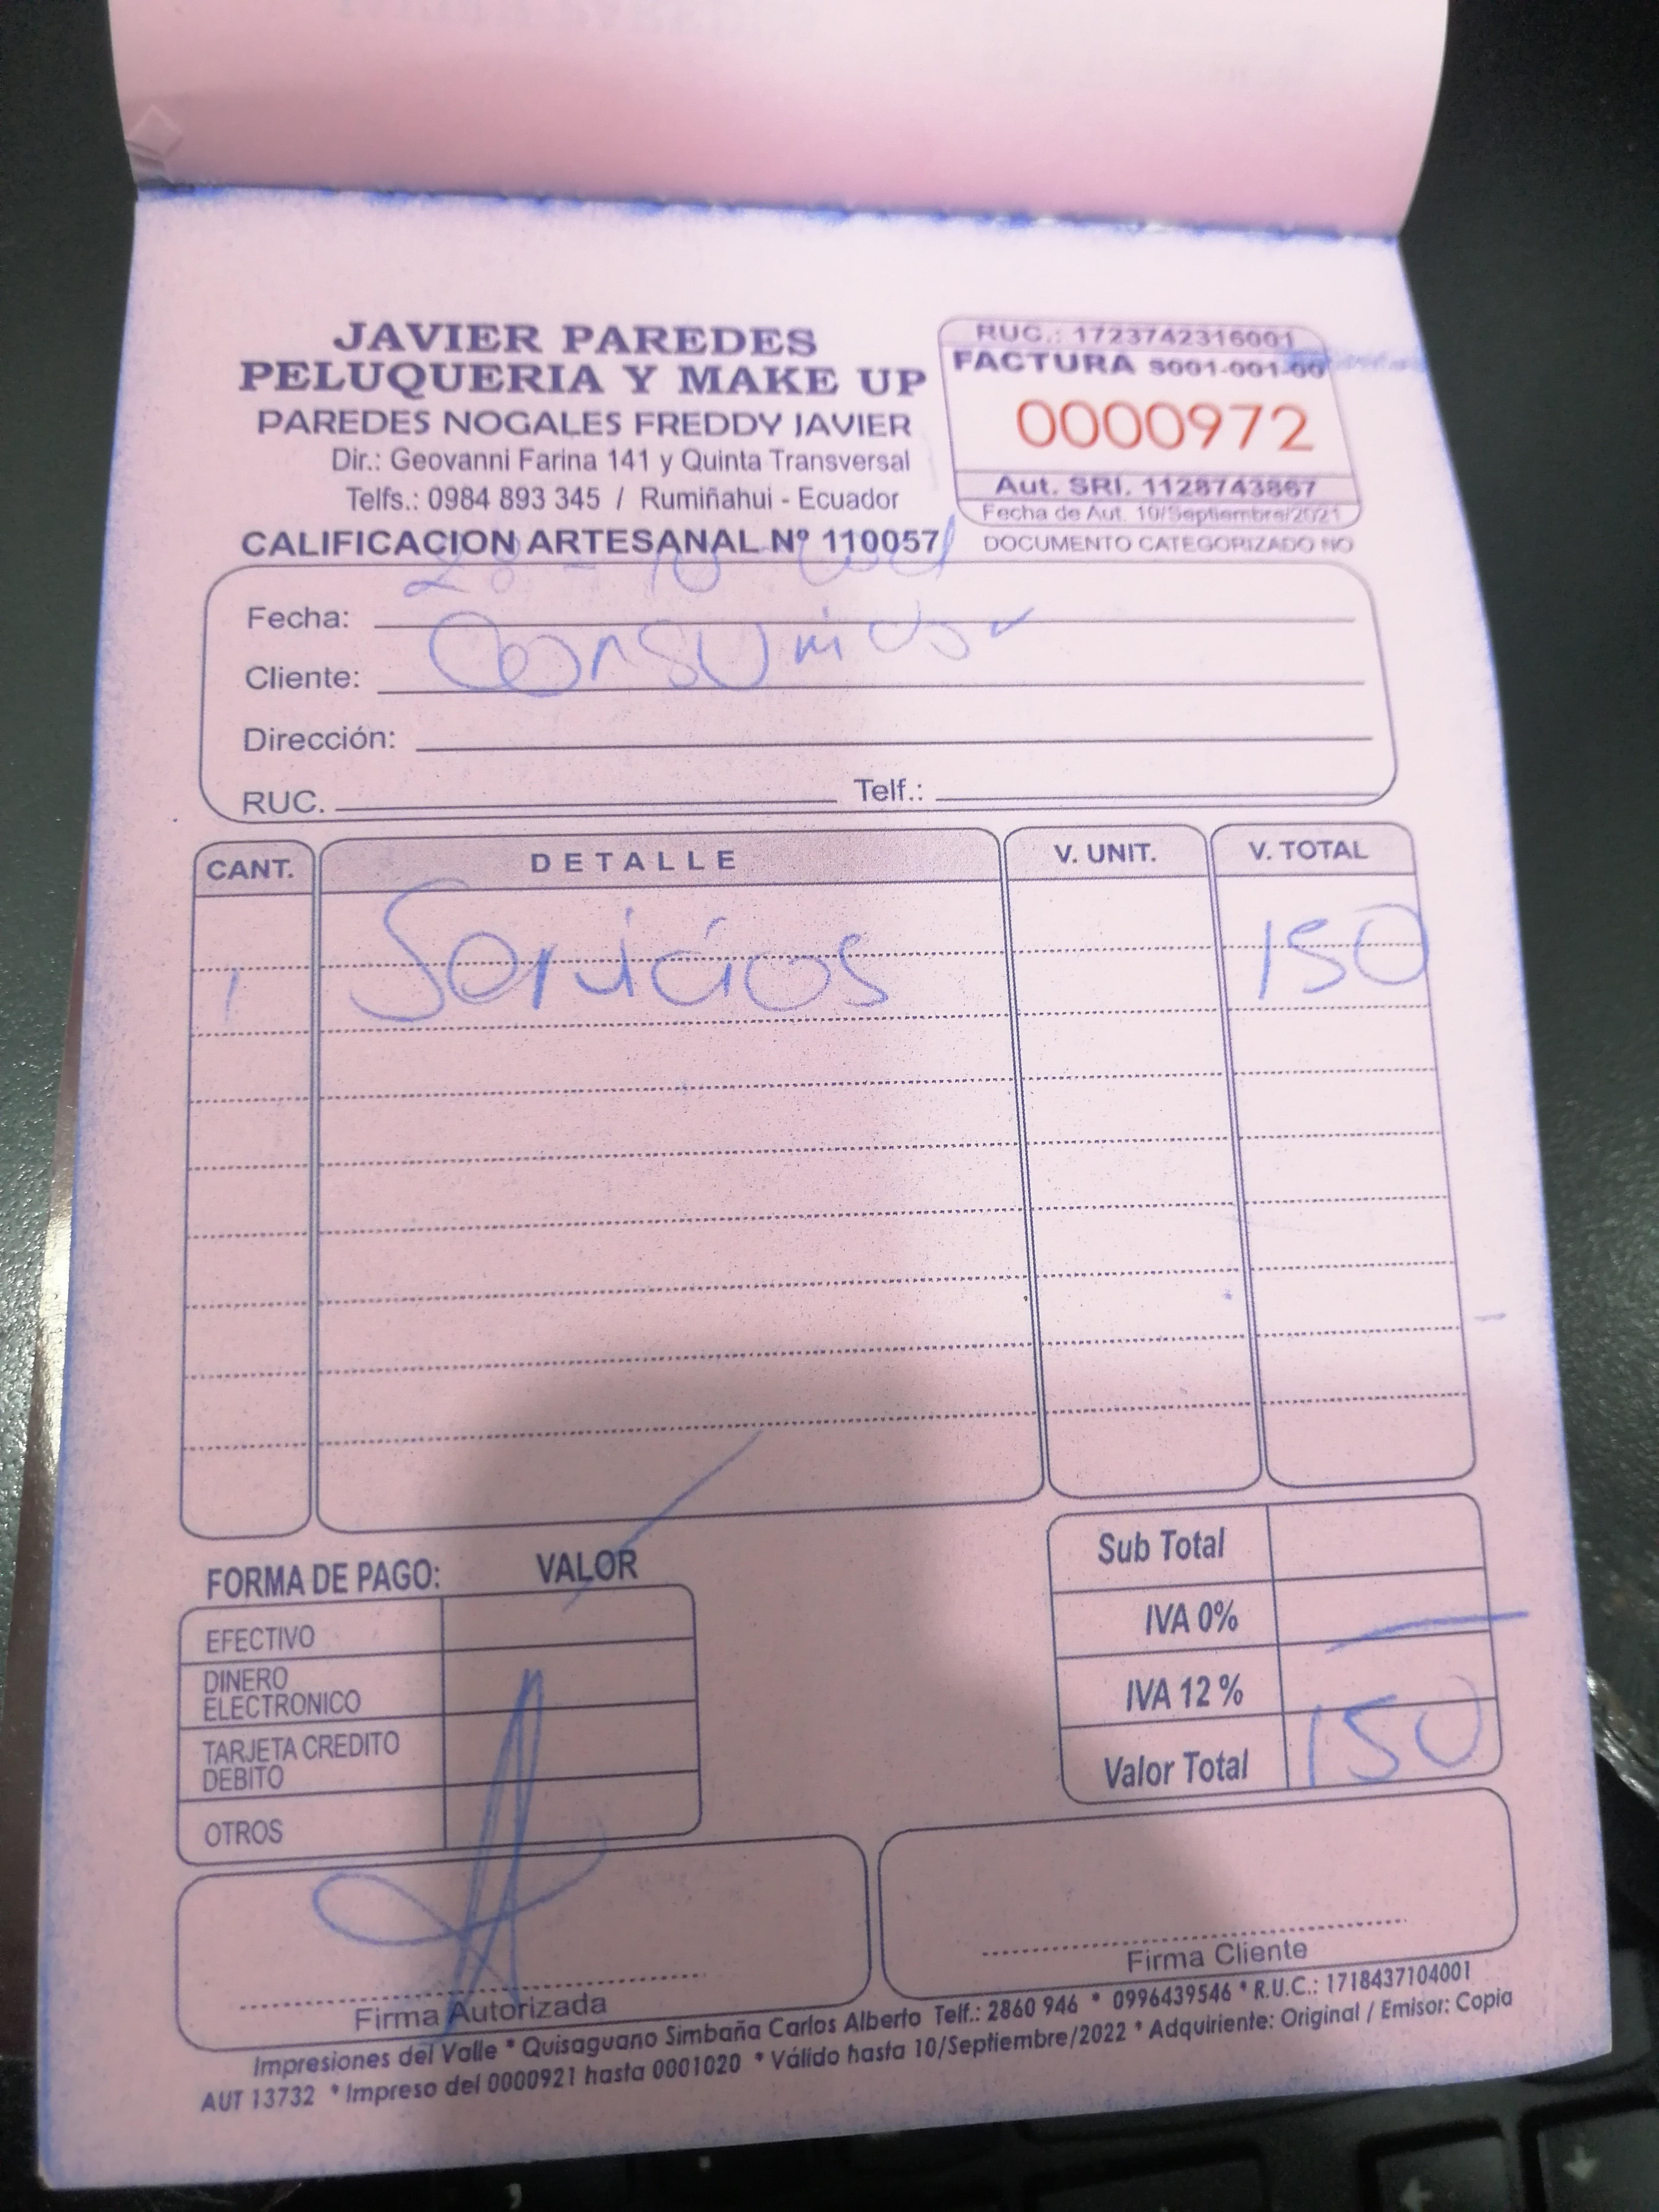 JAVIER PAREDES
PELUQUERIA Y MAKE UP
PAREDES NOGALES FREDDY JAVIER
Dir.: Geovanni Farina 141 y Quinta Transversal
Telfs.: 0984 893 345 / Rumiñahui - Ecuador
CALIFICACION ARTESANAL Nº 110057
RUC.: 1723742316001
FACTURA S001-001-00
0000972
Aut. SRI. 1128743867
Fecha de Aut. 10/Septiembre/2021
DOCUMENTO CATEGORIZADO NO
Fecha: 28 - 10
Cliente: Consumidor
Dirección:
RUC. Telf.:
CANT. DETALLE V. UNIT. V. TOTAL
1 Servicios 150
FORMA DE PAGO: VALOR
EFECTIVO
DINERO ELECTRONICO
TARJETA CREDITO DEBITO
OTROS
Sub Total
IVA 0%
IVA 12 %
Valor Total 150
Firma Autorizada
Firma Cliente
Impresiones del Valle * Quisaguano Simbaña Carlos Alberto Telf.: 2860 946 * 0996439546 * R.U.C.: 1718437104001
AUT 13732 * Impreso del 0000921 hasta 0001020 * Válido hasta 10/Septiembre/2022 * Adquiriente: Original / Emisor: Copia